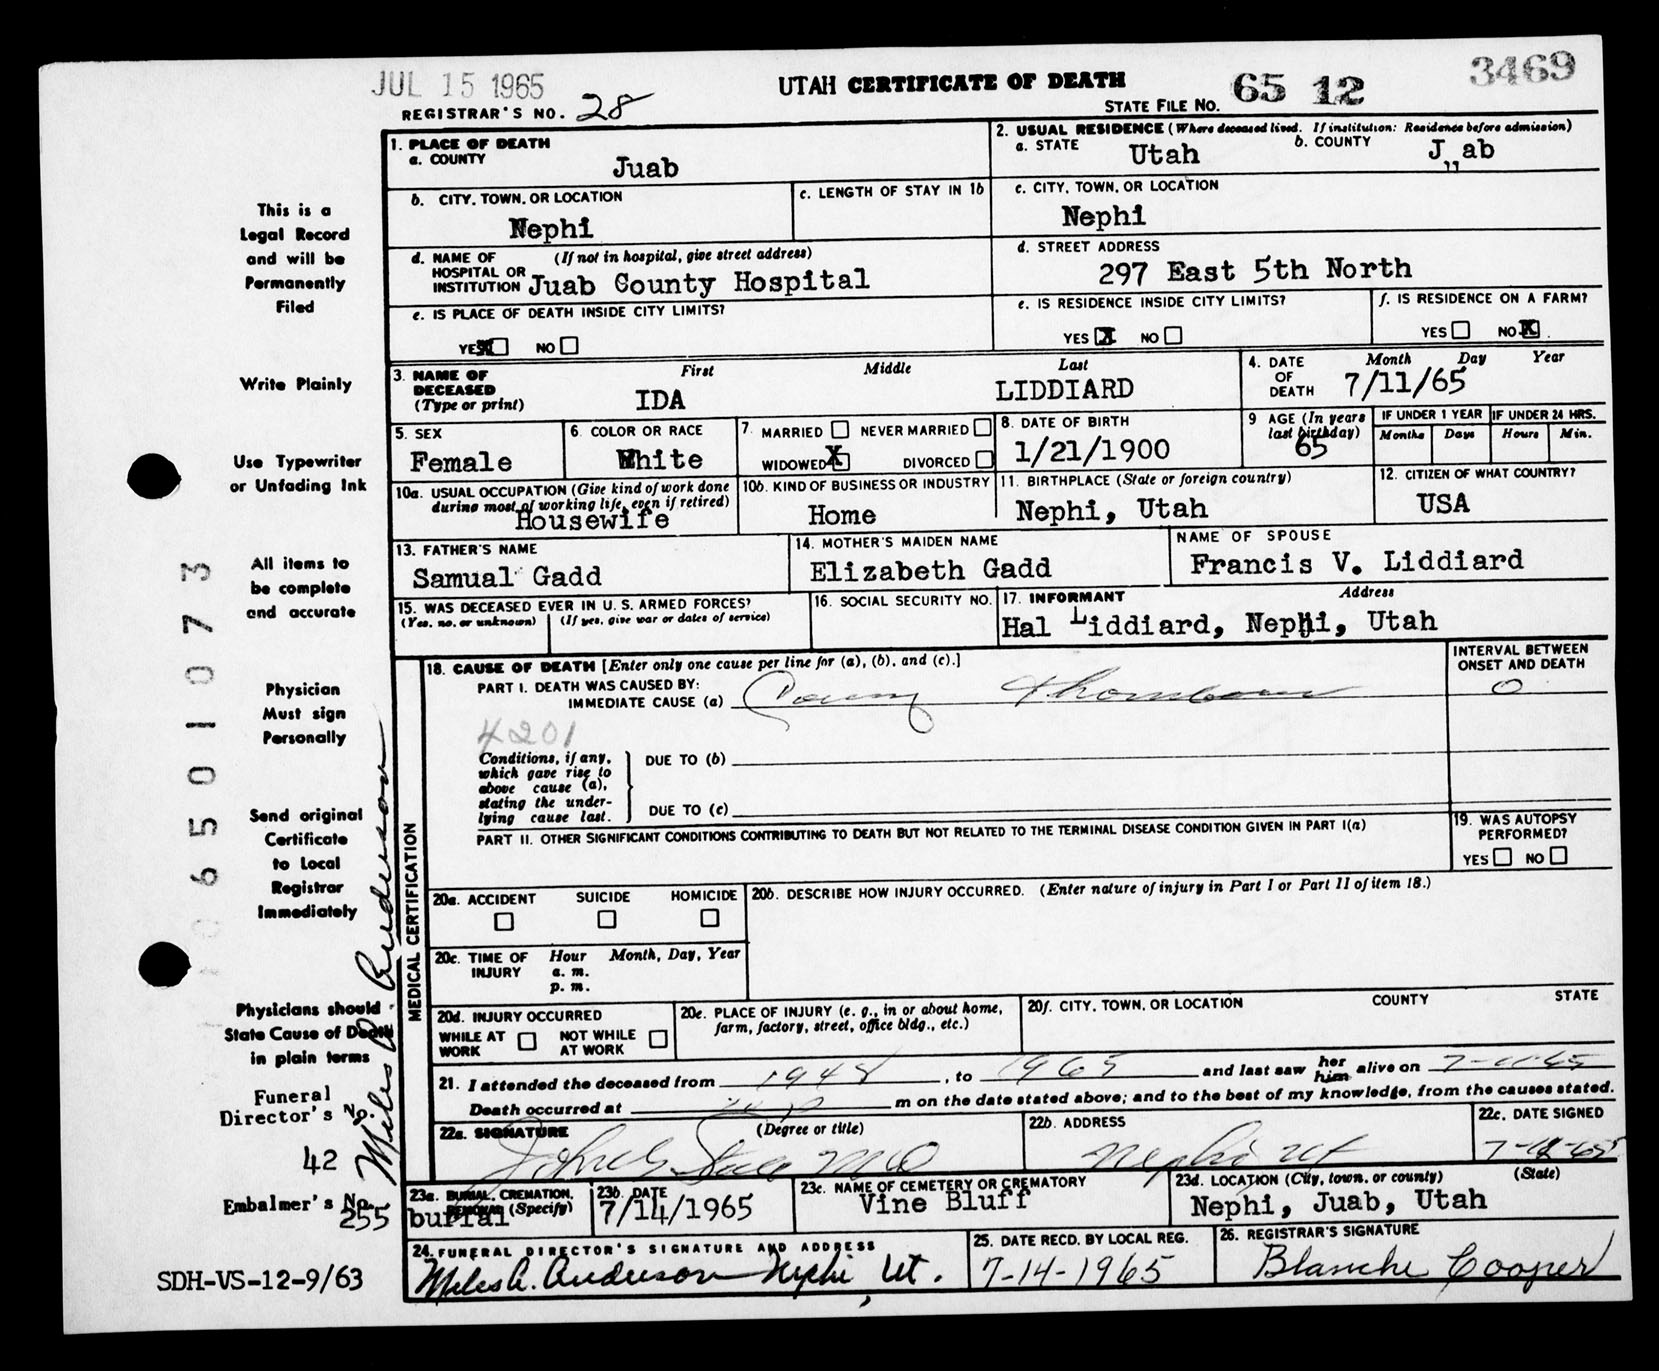 JUL 15 1965
UTAH CERTIFICATE OF DEATH
65 12
3469
REGISTRAR'S NO. 28
STATE FILE NO.
1. PLACE OF DEATH
a. COUNTY
Juab
2. USUAL RESIDENCE (Where deceased lived. If institution: Residence before admission)
a. STATE
Utah
b. COUNTY
Juab
b. CITY, TOWN, OR LOCATION
Nephi
c. LENGTH OF STAY IN 1b
c. CITY, TOWN, OR LOCATION
Nephi
d. NAME OF HOSPITAL OR INSTITUTION
(If not in hospital, give street address)
Juab County Hospital
d. STREET ADDRESS
297 East 5th North
e. IS PLACE OF DEATH INSIDE CITY LIMITS?
YES X NO
e. IS RESIDENCE INSIDE CITY LIMITS?
YES X NO
f. IS RESIDENCE ON A FARM?
YES NO X
3. NAME OF DECEASED
(Type or print)
First Middle Last
IDA LIDDIARD
4. DATE OF DEATH
Month Day Year
7/11/65
5. SEX
Female
6. COLOR OR RACE
White
7. MARRIED NEVER MARRIED
WIDOWED X DIVORCED
8. DATE OF BIRTH
1/21/1900
9 AGE (In years last birthday)
65
IF UNDER 1 YEAR
Months Days
IF UNDER 24 HRS.
Hours Min.
10a. USUAL OCCUPATION (Give kind of work done
during most of working life, even if retired)
Housewife
10b. KIND OF BUSINESS OR INDUSTRY
Home
11. BIRTHPLACE (State or foreign country)
Nephi, Utah
12. CITIZEN OF WHAT COUNTRY?
USA
13. FATHER'S NAME
Samual Gadd
14. MOTHER'S MAIDEN NAME
Elizabeth Gadd
NAME OF SPOUSE
Francis V. Liddiard
15. WAS DECEASED EVER IN U. S. ARMED FORCES?
(Yes, no, or unknown) (If yes, give war or dates of service)
16. SOCIAL SECURITY NO.
17. INFORMANT Address
Hal Liddiard, Nephi, Utah
MEDICAL CERTIFICATION
18. CAUSE OF DEATH [Enter only one cause per line for (a), (b), and (c).]
INTERVAL BETWEEN
ONSET AND DEATH
PART I. DEATH WAS CAUSED BY:
IMMEDIATE CAUSE (a)
0
4201
Conditions, if any,
which gave rise to
above cause (a),
stating the under-
lying cause last.
DUE TO (b)
DUE TO (c)
PART II. OTHER SIGNIFICANT CONDITIONS CONTRIBUTING TO DEATH BUT NOT RELATED TO THE TERMINAL DISEASE CONDITION GIVEN IN PART I(a)
19. WAS AUTOPSY
PERFORMED?
YES NO
20a. ACCIDENT SUICIDE HOMICIDE
20b. DESCRIBE HOW INJURY OCCURRED. (Enter nature of injury in Part I or Part II of item 18.)
20c. TIME OF INJURY
Hour Month, Day, Year
a. m.
p. m.
20d. INJURY OCCURRED
WHILE AT WORK
NOT WHILE AT WORK
20e. PLACE OF INJURY (e. g., in or about home,
farm, factory, street, office bldg., etc.)
20f. CITY, TOWN, OR LOCATION COUNTY STATE
21. I attended the deceased from 1948, to 1965 and last saw her him alive on 7-11-65
Death occurred at m on the date stated above; and to the best of my knowledge, from the causes stated.
22a. SIGNATURE (Degree or title)
MD
22b. ADDRESS
Nephi Ut
22c. DATE SIGNED
23a. BURIAL, CREMATION,
REMOVAL (Specify)
burial
23b. DATE
7/14/1965
23c. NAME OF CEMETERY OR CREMATORY
Vine Bluff
23d. LOCATION (City, town, or county) (State)
Nephi, Juab, Utah
24. FUNERAL DIRECTOR'S SIGNATURE AND ADDRESS
Miles A. Anderson Nephi, Ut.
25. DATE RECD. BY LOCAL REG.
7-14-1965
26. REGISTRAR'S SIGNATURE
Blanche Cooper
This is a
Legal Record
and will be
Permanently
Filed
Write Plainly
Use Typewriter
or Unfading Ink
All items to
be complete
and accurate
Physician
Must sign
Personally
Send original
Certificate
to Local
Registrar
Immediately
Physicians should
State Cause of Death
in plain terms
Funeral
Director's No.
42
Embalmer's No.
255
Miles A. Anderson
0 6 5 0 1 0 7 3
SDH-VS-12-9/63